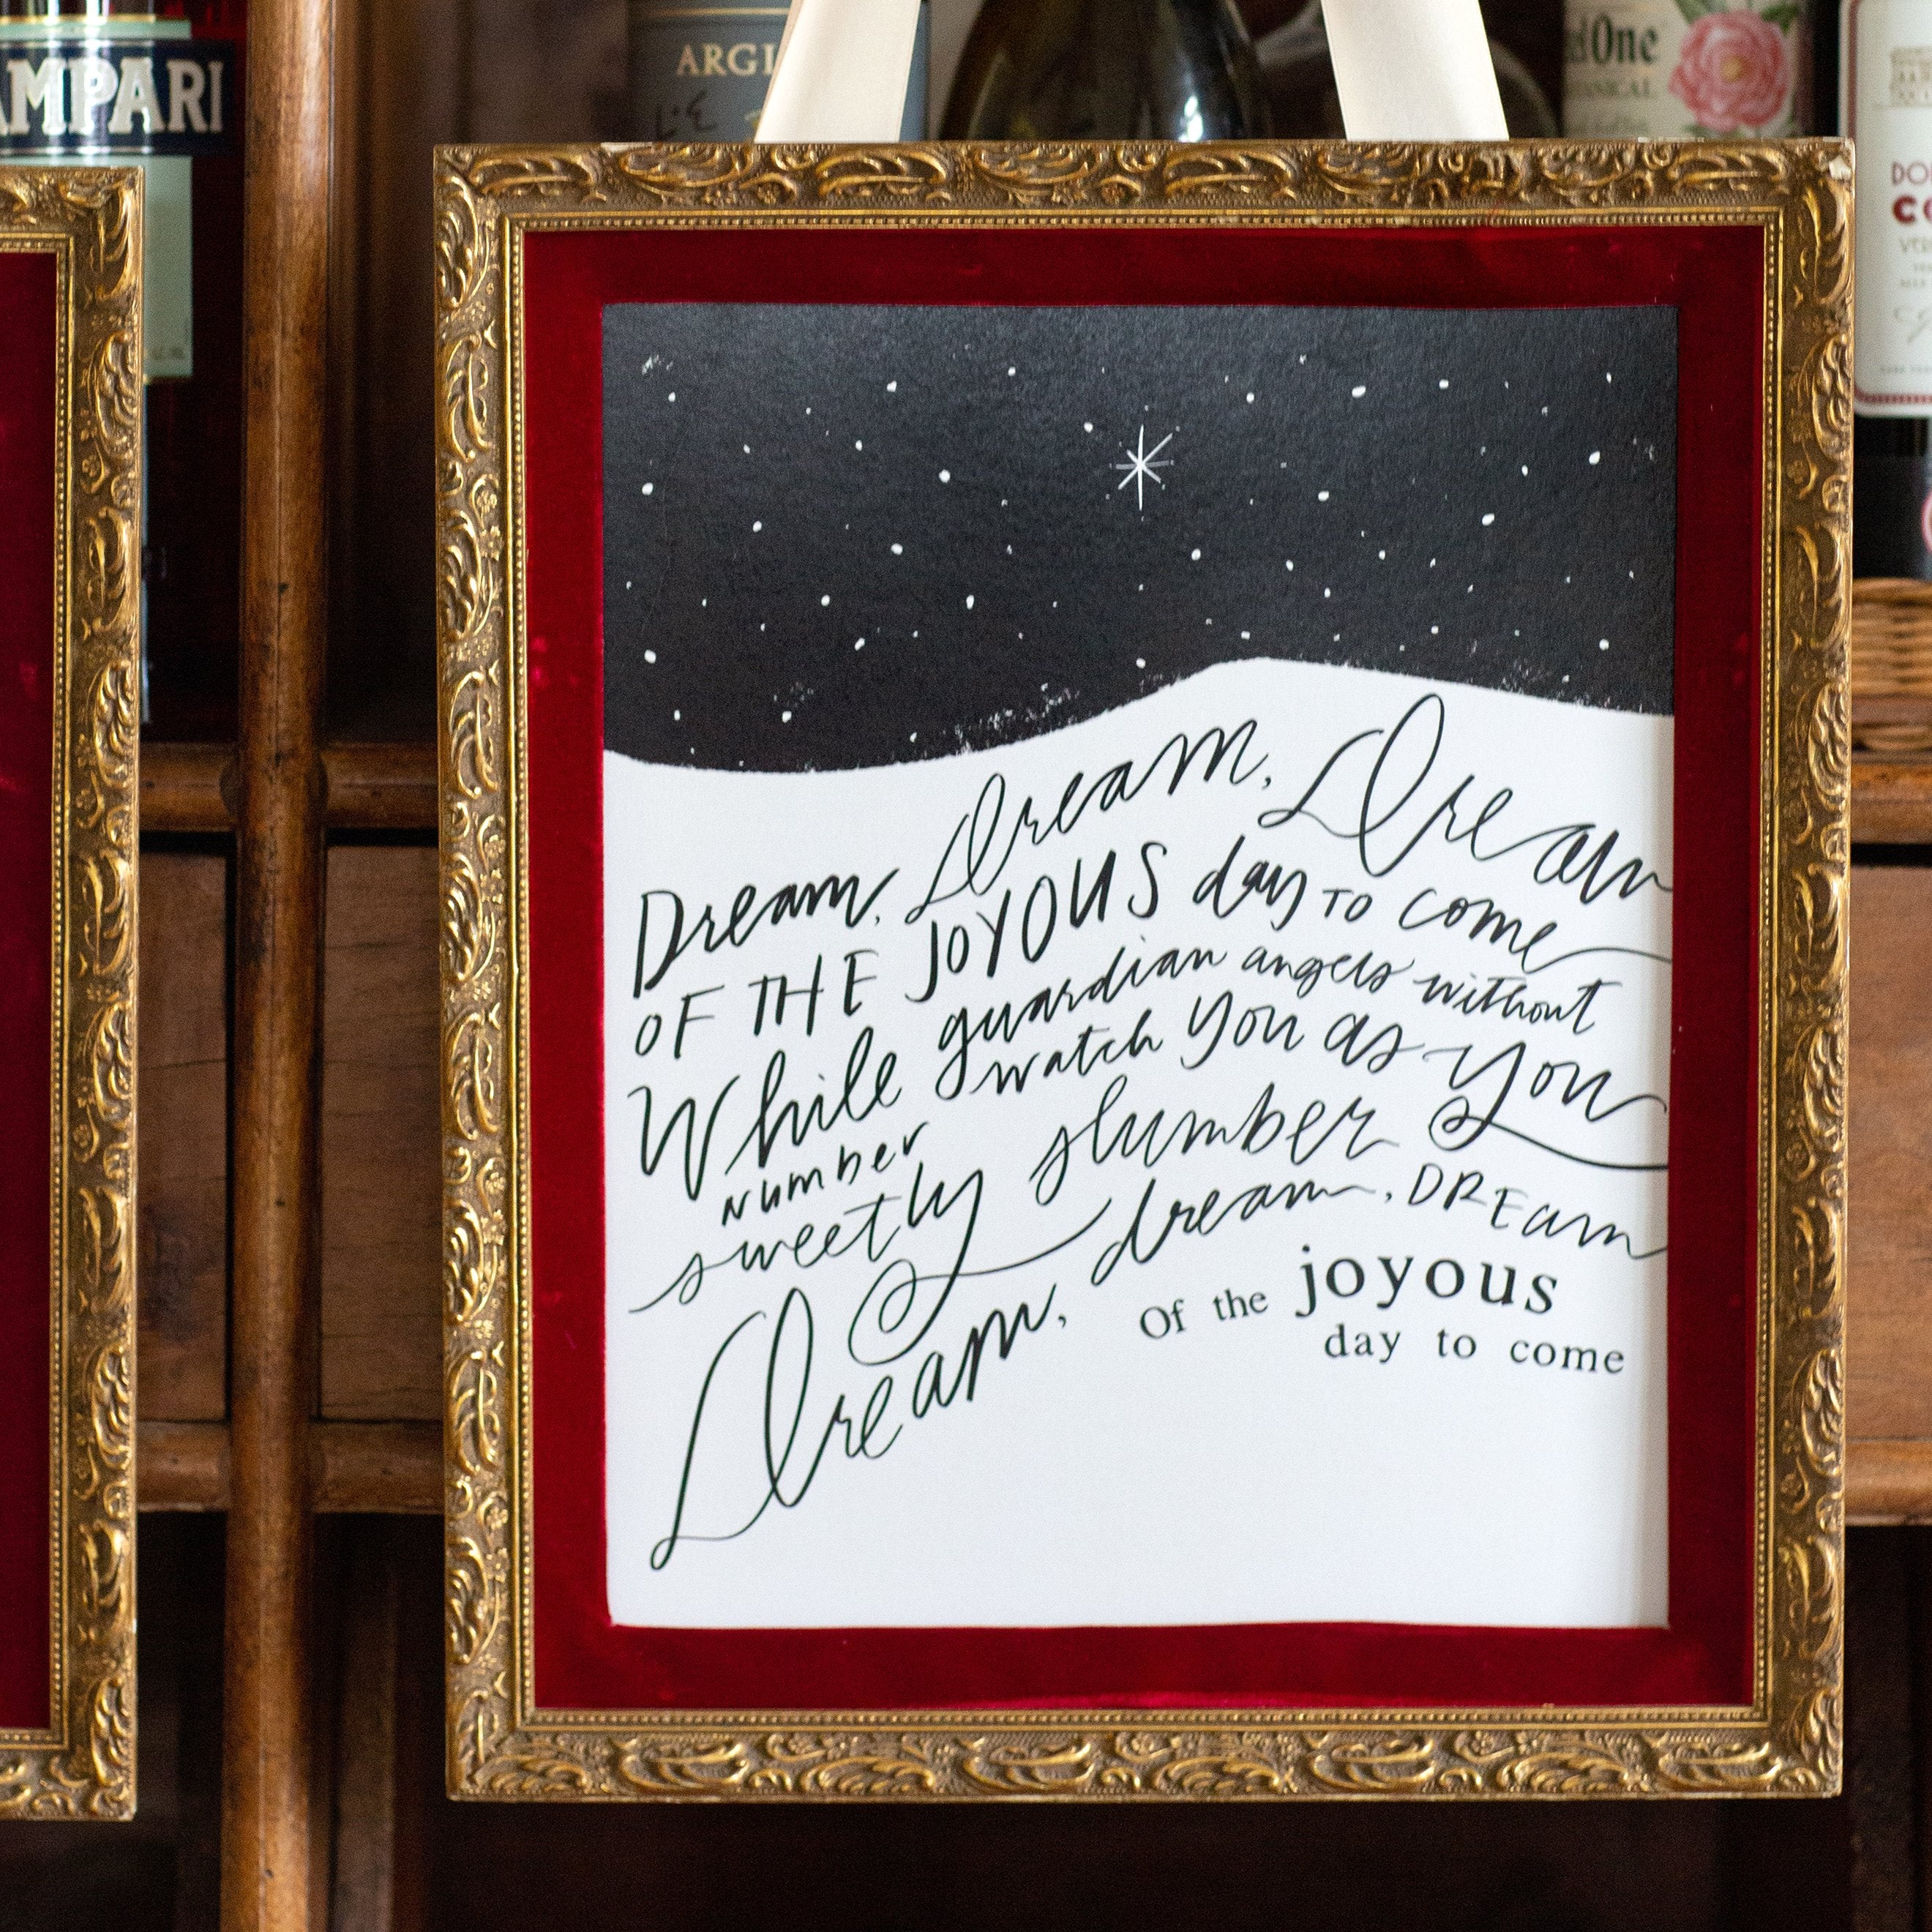 AMPARI
ARGI
dOne
Dream, Dream, Dream
OF THE JOYOUS day TO come
While guardian angels without
number watch you as you
sweetly slumber
Dream, dream, DREam
Of the joyous
day to come